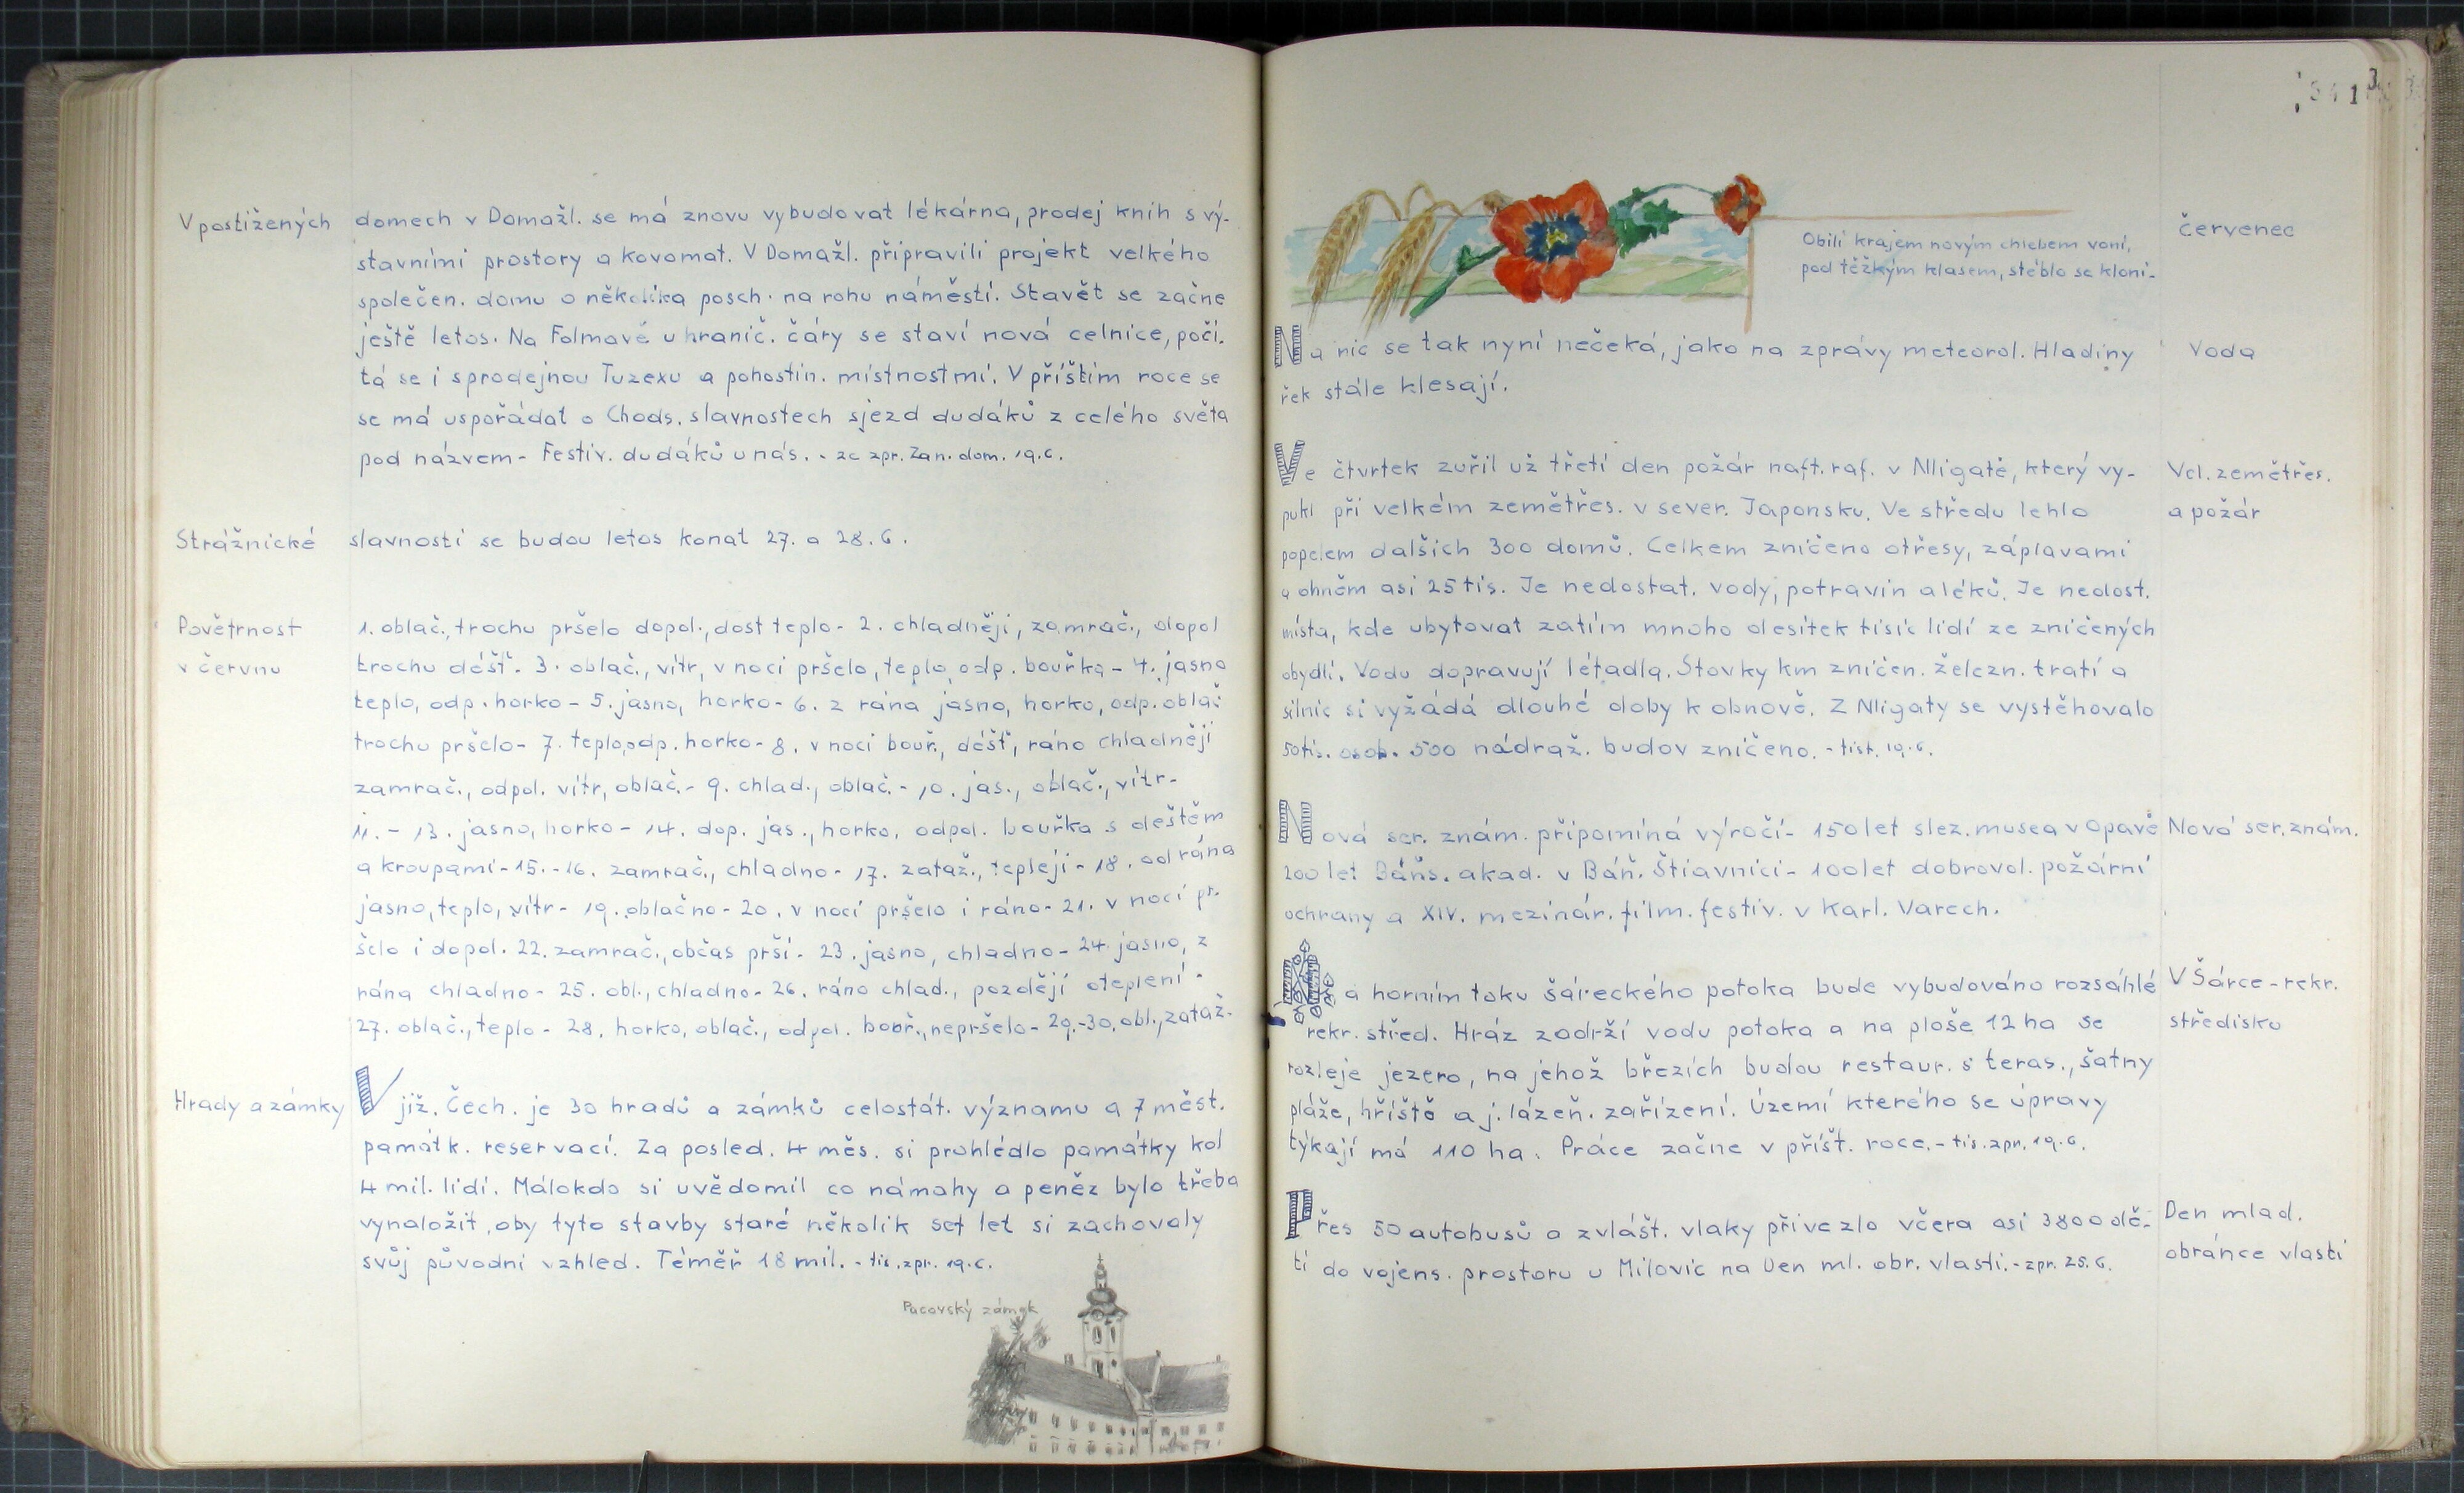 V postižených domech v Domažl. se má znovu vybudovat lékárna, prodej knih s vý-
stavními prostory a Kovomat. V Domažl. připravili projekt velkého
společen. domu o několika posch. na rohu náměstí. Stavět se začne
ještě letos. Na Folmavě u hranič. čáry se staví nová celnice, počí.
tá se i s prodejnou Tuzexu a pohostin. místnostmi. V příštím roce se
se má uspořádat o Chods. slavnostech sjezd dudáků z celého světa
pod názvem - Festiv. dudáků u nás. - ze zpr. Zan. dom. 19.6.
Strážnické slavnosti se budou letos konat 27. a 28.6.
Povětrnost
v červnu
1. oblač., trochu pršelo dopol., dost teplo - 2. chladněji, zamrač., dopol
trochu déšť. 3. oblač., vítr, v noci pršelo, teplo, odp. bouřka - 4. jasno
teplo, odp. horko - 5. jasno, horko - 6. z rána jasno, horko, odp. oblač
trochu pršelo - 7. teplo, odp. horko - 8. v noci bouř., déšť, ráno chladněji
zamrač., odpol. vítr, oblač. - 9. chlad., oblač. - 10. jas., oblač., vítr -
11. - 13. jasno, horko - 14. dop. jas., horko, odpol. bouřka s deštěm
a kroupami - 15. - 16. zamrač., chladno - 17. zataž., tepleji - 18. od rána
jasno, teplo, vítr - 19. oblačno - 20. v noci pršelo i ráno - 21. v noci pr-
šelo i dopol. 22. zamrač., občas prší - 23. jasno, chladno - 24. jasno, z
rána chladno - 25. obl., chladno - 26. ráno chlad., později oteplení -
27. oblač., teplo - 28. horko, oblač., odpol. bouř., nepršelo - 29. - 30. obl., zataž.
Hrady a zámky
V již. Čech. je 30 hradů a zámků celostát. významu a 7 měst.
památk. reservací. Za posled. 4 měs. si prohlédlo památky kol
4 mil. lidí. Málokdo si uvědomil co námahy a peněz bylo třeba
vynaložit, aby tyto stavby staré několik set let si zachovaly
svůj původní vzhled. Téměř 18 mil. - tis. zpr. 19.6.
Pacovský zámek
341
červenec
Obilí krajem novým chlebem voní,
pod těžkým klasem, stéblo se kloní -
Na nic se tak nyní nečeká, jako na zprávy meteorol. Hladiny
řek stále klesají.
Voda
Ve čtvrtek zuřil už třetí den požár naft. raf. v NIigatě, který vy-
pukl při velkém zemětřes. v sever. Japonsku. Ve středu lehlo
popelem dalších 300 domů. Celkem zničeno otřesy, záplavami
a ohněm asi 25 tis. Je nedostat. vody, potravin a léků. Je nedost.
místa, kde ubytovat zatím mnoho desítek tisíc lidí ze zničených
obydlí. Vodu dopravují létadla. Stovky km zničen. železn. tratí a
silnic si vyžádá dlouhé doby k obnově. Z NIigaty se vystěhovalo
50 tis. osob. 500 nádraž. budov zničeno. - tisk. 19.6.
Vel. zemětřes.
a požár
Nová ser. znám. připomíná výročí - 150 let slez. musea v Opavě
200 let Báňs. akad. v Báň. Štiavnici - 100 let dobrovol. požární
ochrany a XIV. mezinár. film. festiv. v Karl. Varech.
Nová ser. znám.
Na horním toku šáreckého potoka bude vybudováno rozsáhlé
rekr. střed. Hráz zadrží vodu potoka a na ploše 12 ha se
rozleje jezero, na jehož březích budou restaur. s teras., šatny
pláže, hřiště a j. lázeň. zařízení. Území kterého se úpravy
týkají má 110 ha. Práce začne v příšt. roce. - tis. zpr. 19.6.
V Šárce - rekr.
středisko
Přes 50 autobusů a zvlášt. vlaky přivezlo včera asi 3800 dě-
tí do vojens. prostoru u Milovic na Den ml. obr. vlasti. - zpr. 25.6.
Den mlad.
obránce vlasti